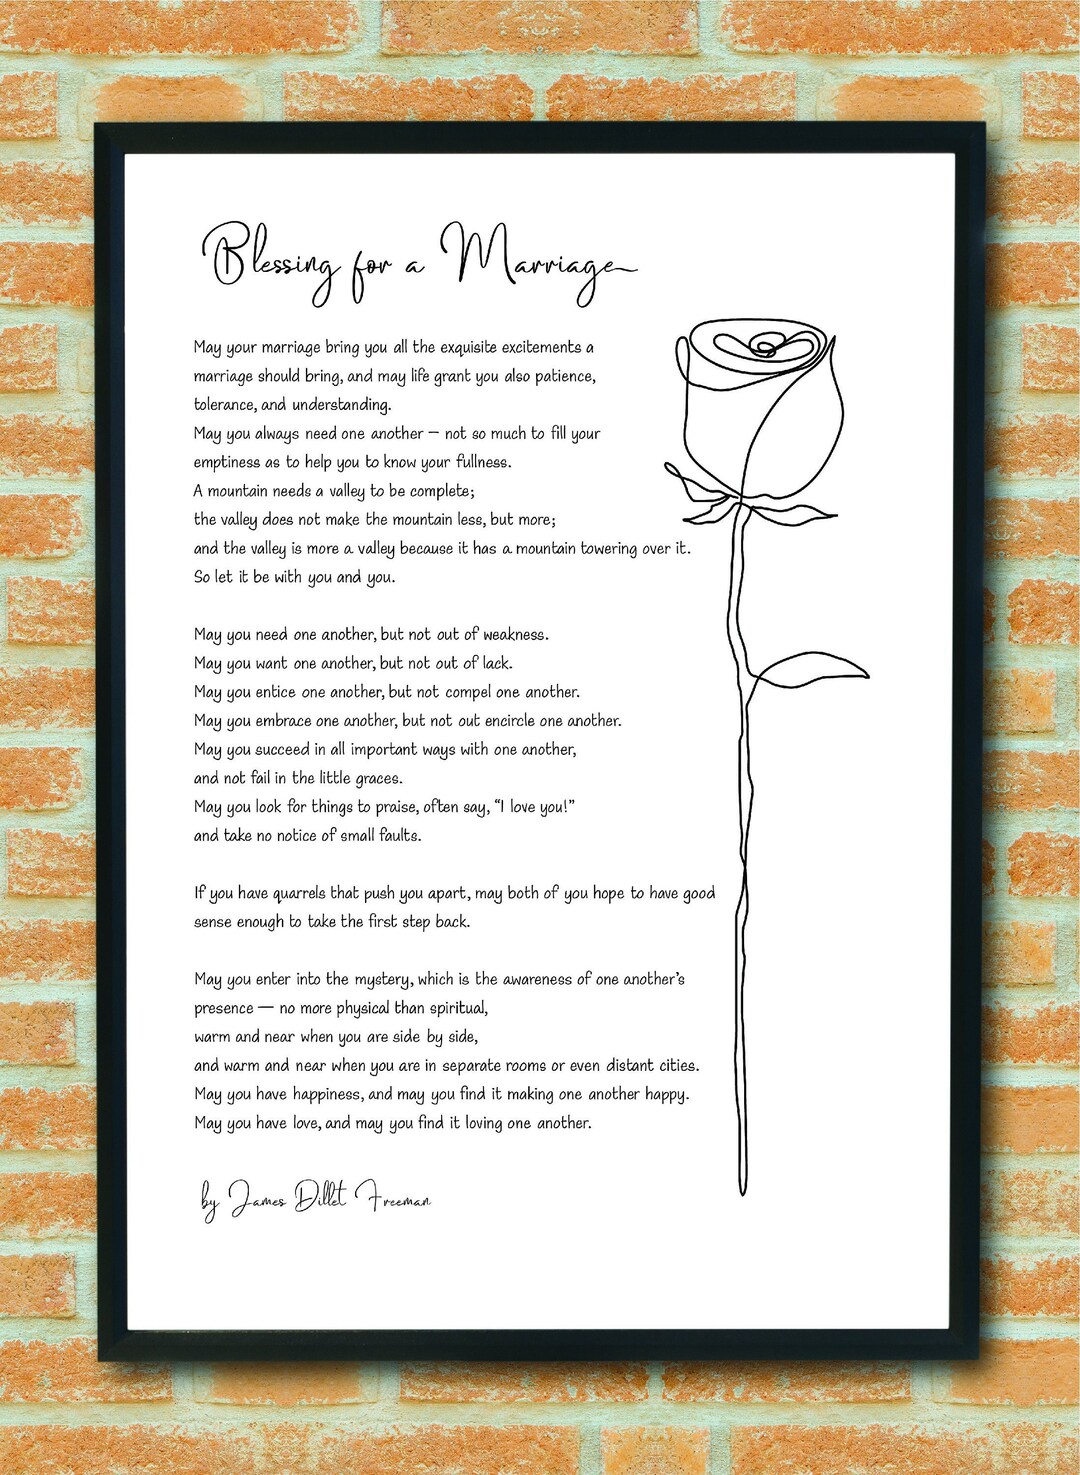 Blessing for a Marriage
May your marriage bring you all the exquisite excitements a
marriage should bring, and may life grant you also patience,
tolerance, and understanding.
May you always need one another – not so much to fill your
emptiness as to help you to know your fullness.
A mountain needs a valley to be complete;
the valley does not make the mountain less, but more;
and the valley is more a valley because it has a mountain towering over it.
So let it be with you and you.
May you need one another, but not out of weakness.
May you want one another, but not out of lack.
May you entice one another, but not compel one another.
May you embrace one another, but not out encircle one another.
May you succeed in all important ways with one another,
and not fail in the little graces.
May you look for things to praise, often say, “I love you!”
and take no notice of small faults.
If you have quarrels that push you apart, may both of you hope to have good
sense enough to take the first step back.
May you enter into the mystery, which is the awareness of one another’s
presence — no more physical than spiritual,
warm and near when you are side by side,
and warm and near when you are in separate rooms or even distant cities.
May you have happiness, and may you find it making one another happy.
May you have love, and may you find it loving one another.
by James Dillet Freeman